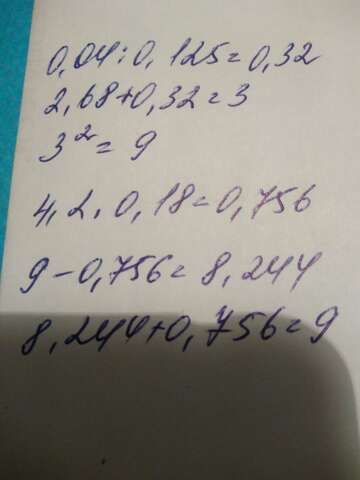 0,04:0,125=0,32
2,68+0,32=3
3²=9
4,2·0,18=0,756
9-0,756=8,244
8,244+0,756=9